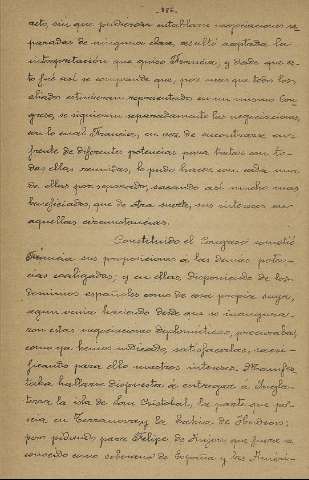 acto, sin que pudieran entablarse negociaciones se-
paradas de ninguna clase, resultó aceptada la
interpretación que quiso Francia, y desde que es-
to fué así se comprende que, por más que todos los
aliados estuvieran representados en un mismo Con-
greso, se siguieron separadamente las negociaciones,
con lo cual Francia, en vez de encontrarse en
frente de diferentes potencias para tratar con to-
das ellas reunidas, lo pudo hacer con cada una
de ellas por separado, sacando así mucho más
beneficiados, que de otra suerte, sus intereses en
aquellas circunstancias.
Constituido el Congreso sometió
Francia sus proposiciones á las demás poten-
cias coaligadas; y en ellas, disponiendo de los
dominios españoles como de cosa propia suya,
según venía haciendo desde que se inaugura-
ron estas negociaciones diplomáticas, procuraba,
como ya hemos indicado, satisfacerlas, sacri-
ficando para ello nuestros intereses. Manifes-
taba hallarse dispuesta á entregar á Ingla-
terra la isla de San Cristobal, la parte que po-
seia en Terranova y la bahia de Hudson;
pero pidiendo para Felipe de Anjou que fuese re-
conocido como soberano de España y las Améri-